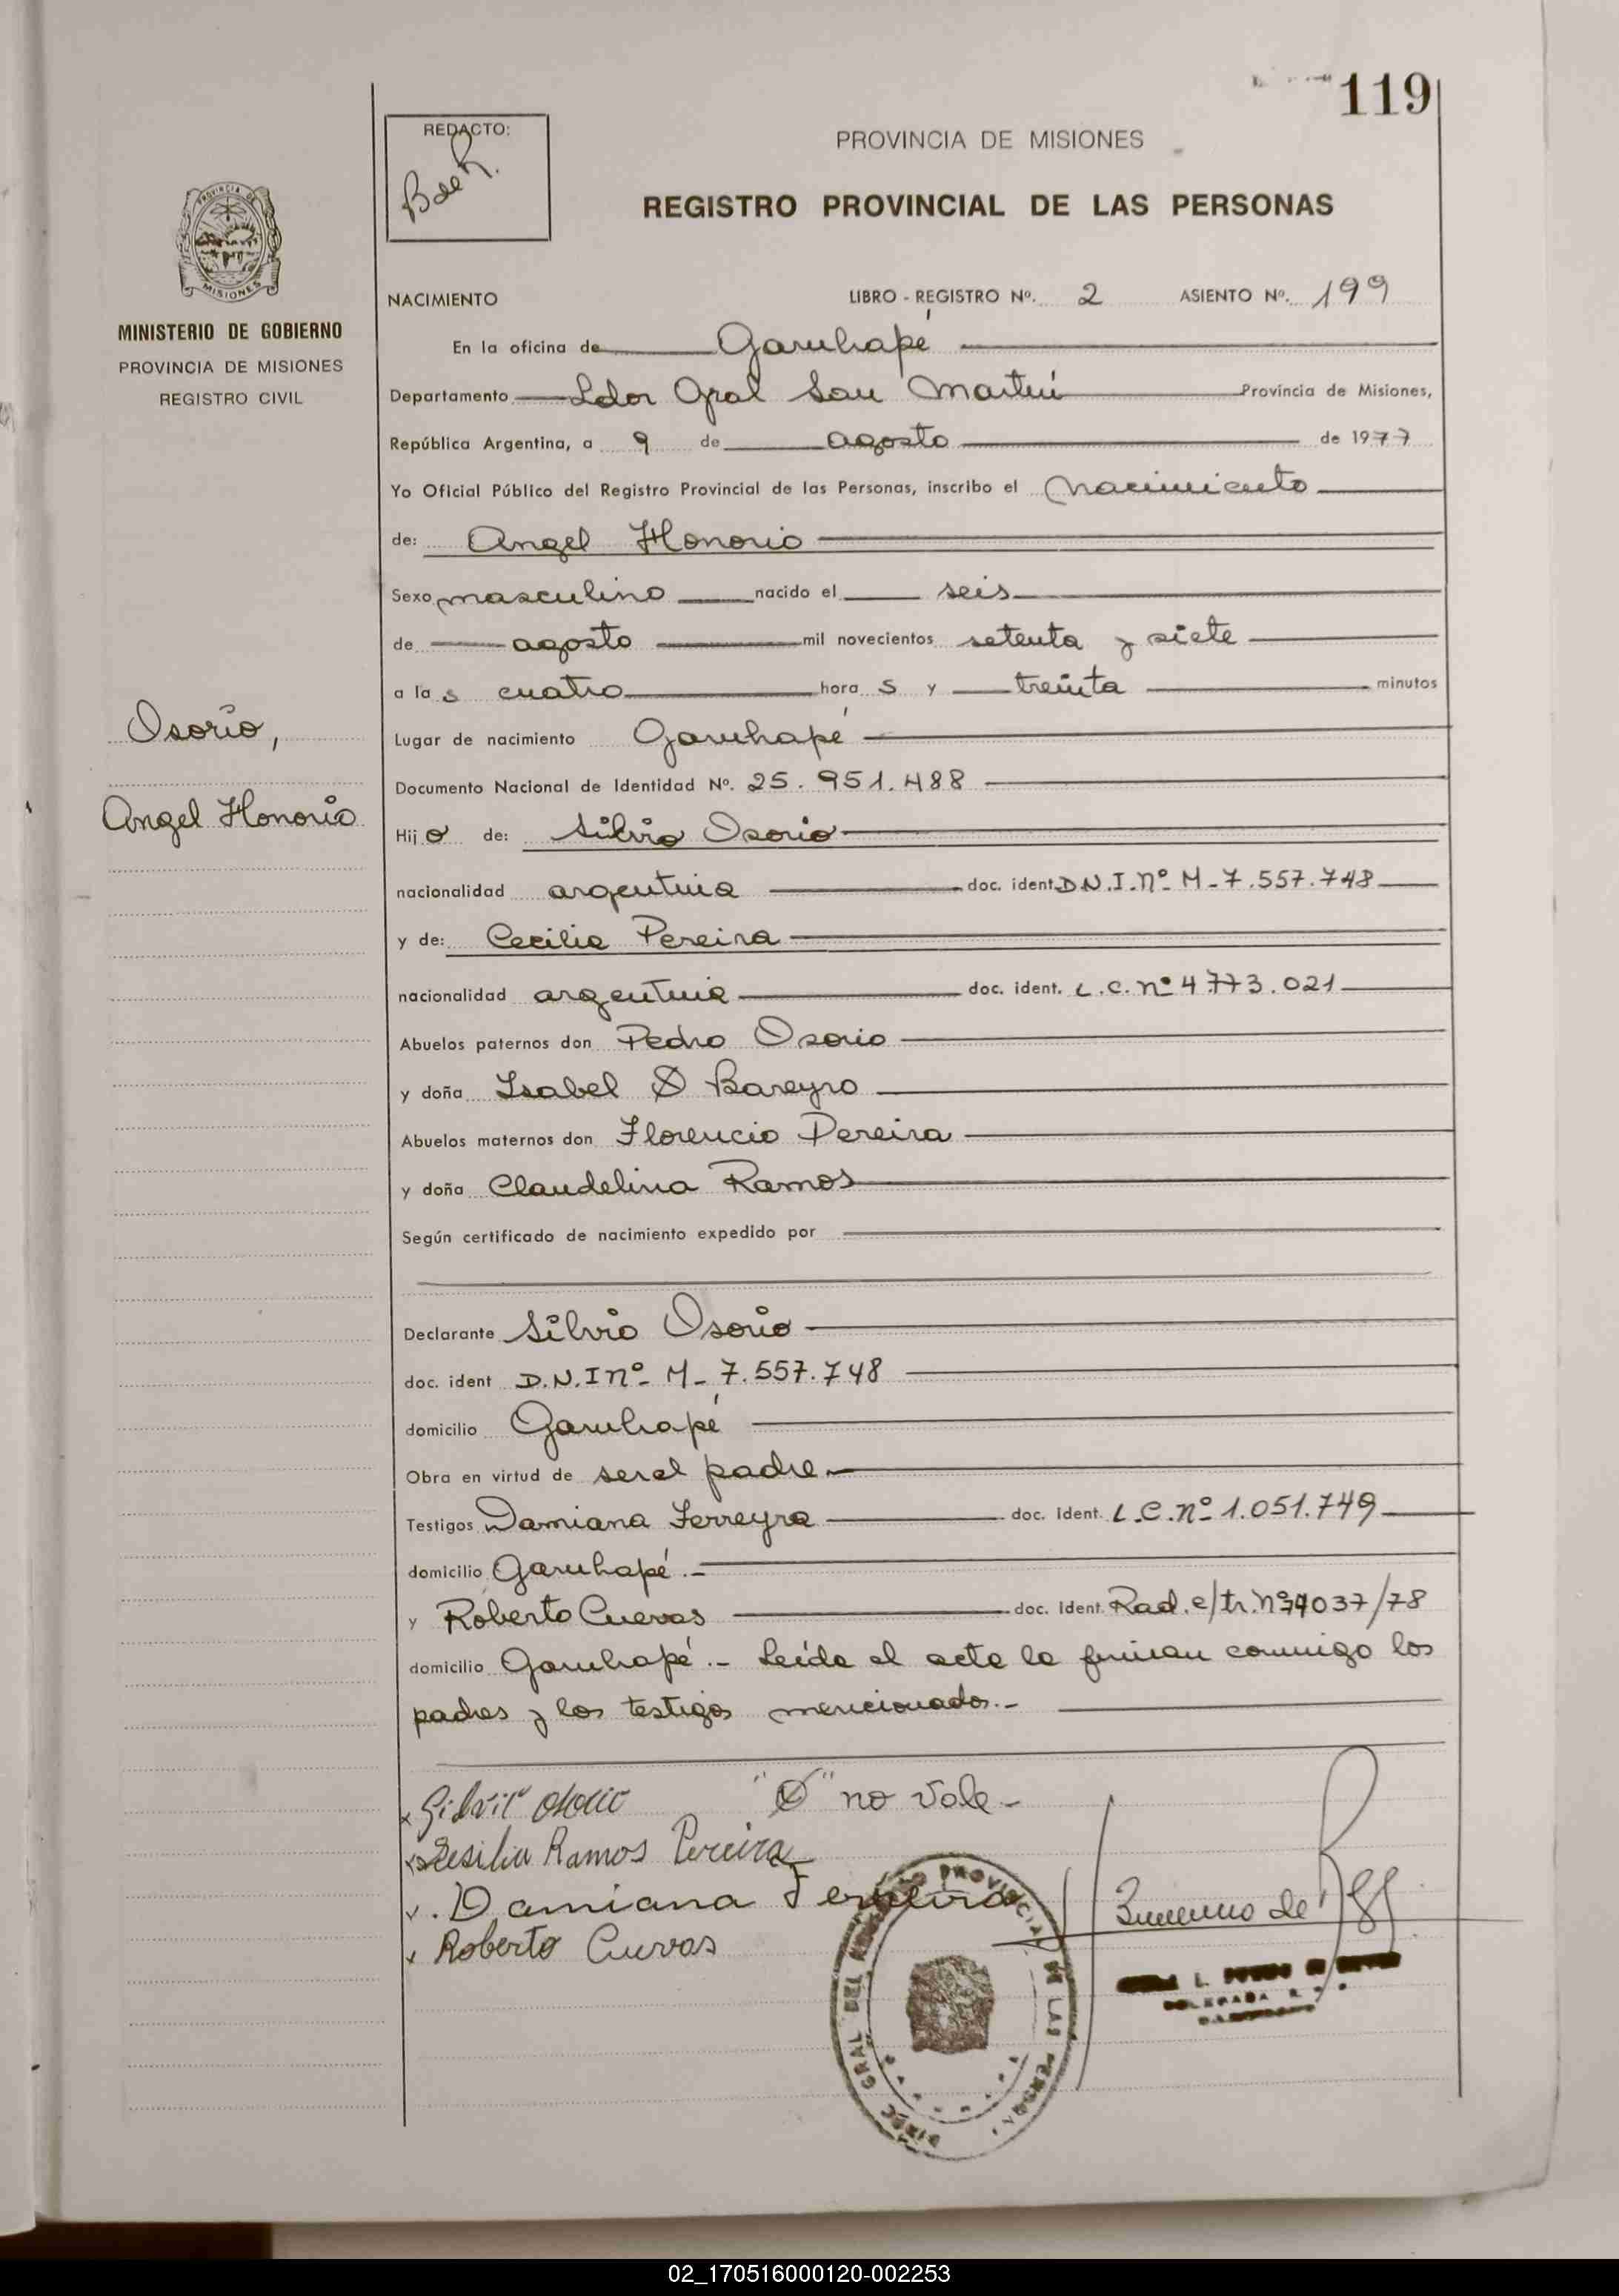 119
REDACTO:
B de R.
PROVINCIA DE MISIONES
REGISTRO PROVINCIAL DE LAS PERSONAS
PROVINCIA DE
MISIONES
MINISTERIO DE GOBIERNO
PROVINCIA DE MISIONES
REGISTRO CIVIL
NACIMIENTO LIBRO - REGISTRO Nº. 2 ASIENTO Nº. 199
En la oficina de Garuhapé
Departamento Ldor Gral San Martín Provincia de Misiones,
República Argentina, a 9 de agosto de 1977
Yo Oficial Público del Registro Provincial de las Personas, inscribo el nacimiento
de: Angel Honorio
Sexo masculino nacido el seis
de agosto mil novecientos setenta y siete
a las cuatro horas y treinta minutos
Osorio,
Angel Honorio
Lugar de nacimiento Garuhapé
Documento Nacional de Identidad Nº. 25.951.488
Hijo de: Silvio Osorio
nacionalidad argentina doc. ident. D.N.I. nº- M-7.557.748
y de: Cecilia Pereira
nacionalidad argentina doc. ident. L.C. nº 4773.021
Abuelos paternos don Pedro Osorio
y doña Isabel O Bareyro
Abuelos maternos don Florencio Pereira
y doña Claudelina Ramos
Según certificado de nacimiento expedido por
Declarante Silvio Osorio
doc. ident D.N.I nº- M-7.557.748
domicilio Garuhapé
Obra en virtud de ser el padre.-
Testigos Damiana Ferreyra doc. Ident. L.C. nº- 1.051.749
domicilio Garuhapé.-
y Roberto Cuevas doc. Ident. Rad. e/tr. nº 4037/78
domicilio Garuhapé.- Leída el acta la firman conmigo los
padres y los testigos mencionados.-
x Silvio Osorio "O" no vale-
x Sesilia Ramos Pereira
x. Damiana Ferreira
x Roberto Cuevas
DIREC GRAL DEL PROVINCIAL DE LAS PERSONAS
DELEGADA
02_170516000120-002253